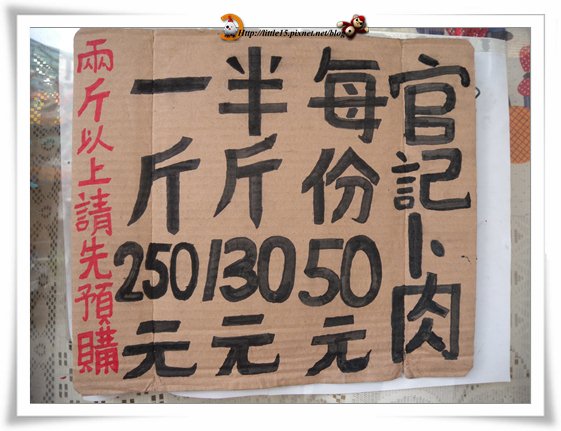 Http://little15.pixnet.net/blog
官記卜肉
每份50元
半斤130元
一斤250元
兩斤以上請先預購